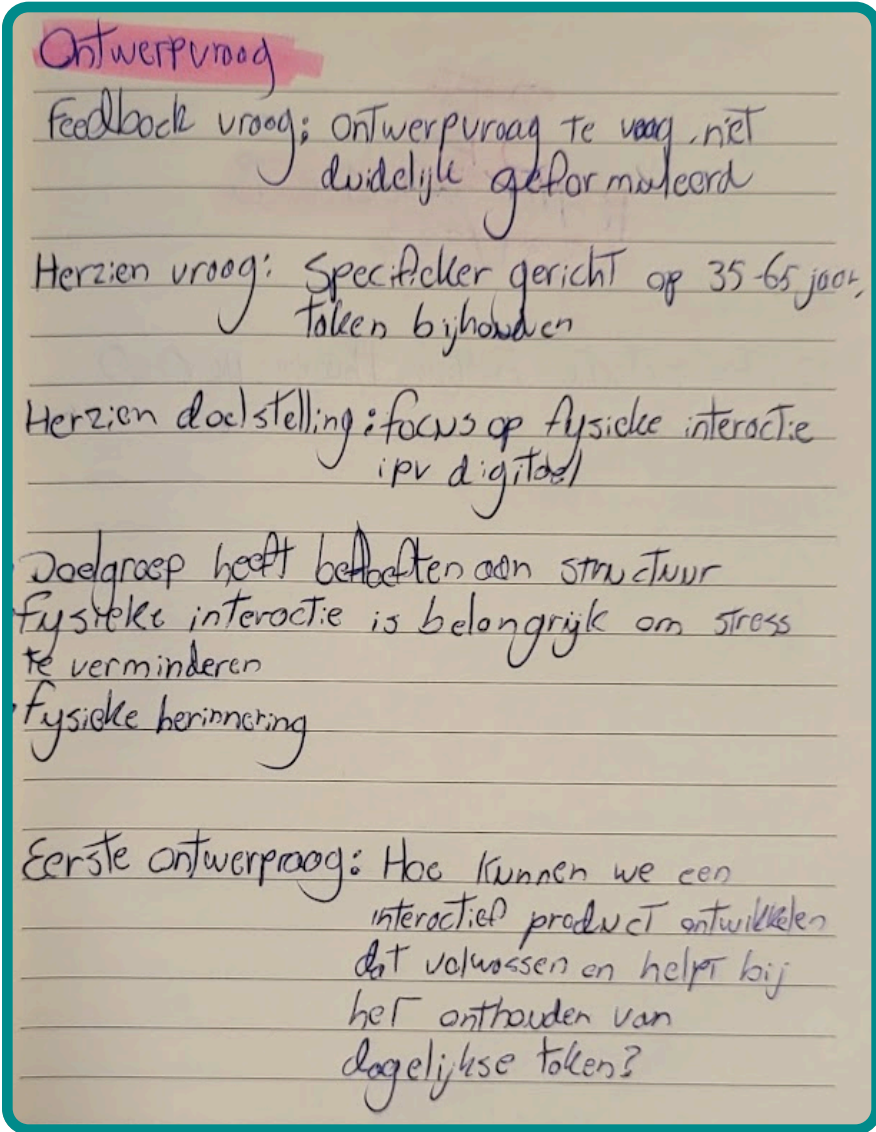 Ontwerpvraag
Feedback vraag: ontwerpvraag te vaag, niet
duidelijk geformuleerd
Herzien vraag: Specifieker gericht op 35-65 jaar,
taken bijhouden
Herzien doelstelling: focus op fysieke interactie
ipv digitaal
• Doelgroep heeft behoeften aan structuur
fysieke interactie is belangrijk om stress
te verminderen
• fysieke herinnering
Eerste ontwerpraag: Hoe kunnen we een
interactief product ontwikkelen
dat volwassen en helpt bij
het onthouden van
dagelijkse taken?